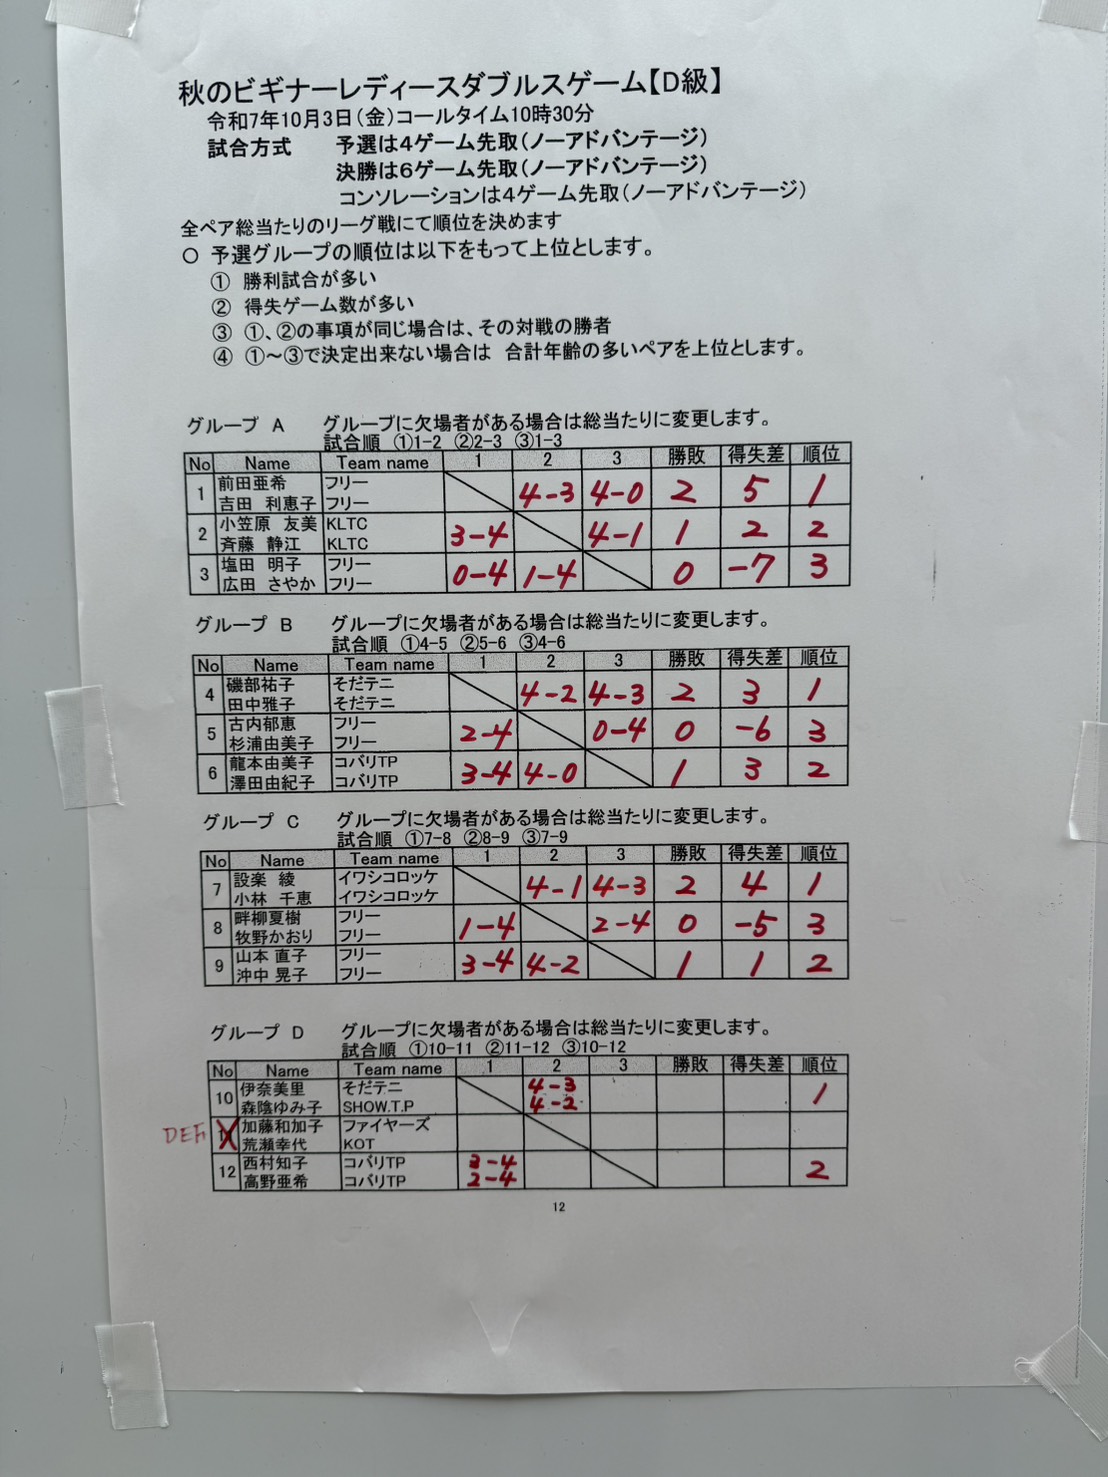 秋のビギナーレディースダブルスゲーム【D級】
令和7年10月3日(金)コールタイム10時30分
試合方式 予選は4ゲーム先取(ノーアドバンテージ)
決勝は6ゲーム先取(ノーアドバンテージ)
コンソレーションは4ゲーム先取(ノーアドバンテージ)
全ペア総当たりのリーグ戦にて順位を決めます
○ 予選グループの順位は以下をもって上位とします。
① 勝利試合が多い
② 得失ゲーム数が多い
③ ①、②の事項が同じ場合は、その対戦の勝者
④ ①~③で決定出来ない場合は 合計年齢の多いペアを上位とします。
グループ A グループに欠場者がある場合は総当たりに変更します。
試合順 ①1-2 ②2-3 ③1-3
No Name Team name 1 2 3 勝敗 得失差 順位
1 前田亜希 フリー 4-3 4-0 2 5 1
吉田 利恵子 フリー
2 小笠原 友美 KLTC 3-4 4-1 1 2 2
斉藤 静江 KLTC
3 塩田 明子 フリー 0-4 1-4 0 -7 3
広田 さやか フリー
グループ B グループに欠場者がある場合は総当たりに変更します。
試合順 ①4-5 ②5-6 ③4-6
No Name Team name 1 2 3 勝敗 得失差 順位
4 磯部祐子 そだテニ 4-2 4-3 2 3 1
田中雅子 そだテニ
5 古内郁恵 フリー 2-4 0-4 0 -6 3
杉浦由美子 フリー
6 龍本由美子 コバリTP 3-4 4-0 1 3 2
澤田由紀子 コバリTP
グループ C グループに欠場者がある場合は総当たりに変更します。
試合順 ①7-8 ②8-9 ③7-9
No Name Team name 1 2 3 勝敗 得失差 順位
7 設楽 綾 イワシコロッケ 4-1 4-3 2 4 1
小林 千恵 イワシコロッケ
8 畔柳夏樹 フリー 1-4 2-4 0 -5 3
牧野かおり フリー
9 山本 直子 フリー 3-4 4-2 1 1 2
沖中 晃子 フリー
グループ D グループに欠場者がある場合は総当たりに変更します。
試合順 ①10-11 ②11-12 ③10-12
No Name Team name 1 2 3 勝敗 得失差 順位
10 伊奈美里 そだテニ 4-3 1
森陰ゆみ子 SHOW.T.P 4-2
DEF 11 加藤和加子 ファイヤーズ
荒瀬幸代 KOT
12 西村知子 コバリTP 3-4 2
高野亜希 コバリTP 2-4
12